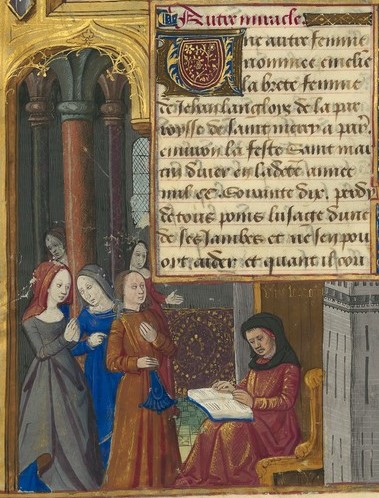 Autre miracle.
Une autre femme
nommee emelie
la brete femme
de Jehan langloys de la par
roysse de saint merry a par.
environ la feste saint mar
tin diver en ladicte annee
mil CC. Soixante dix, perdy
de tous poins lusage dune
de ses Jambes et ne sen pou
oit aider et quant il con